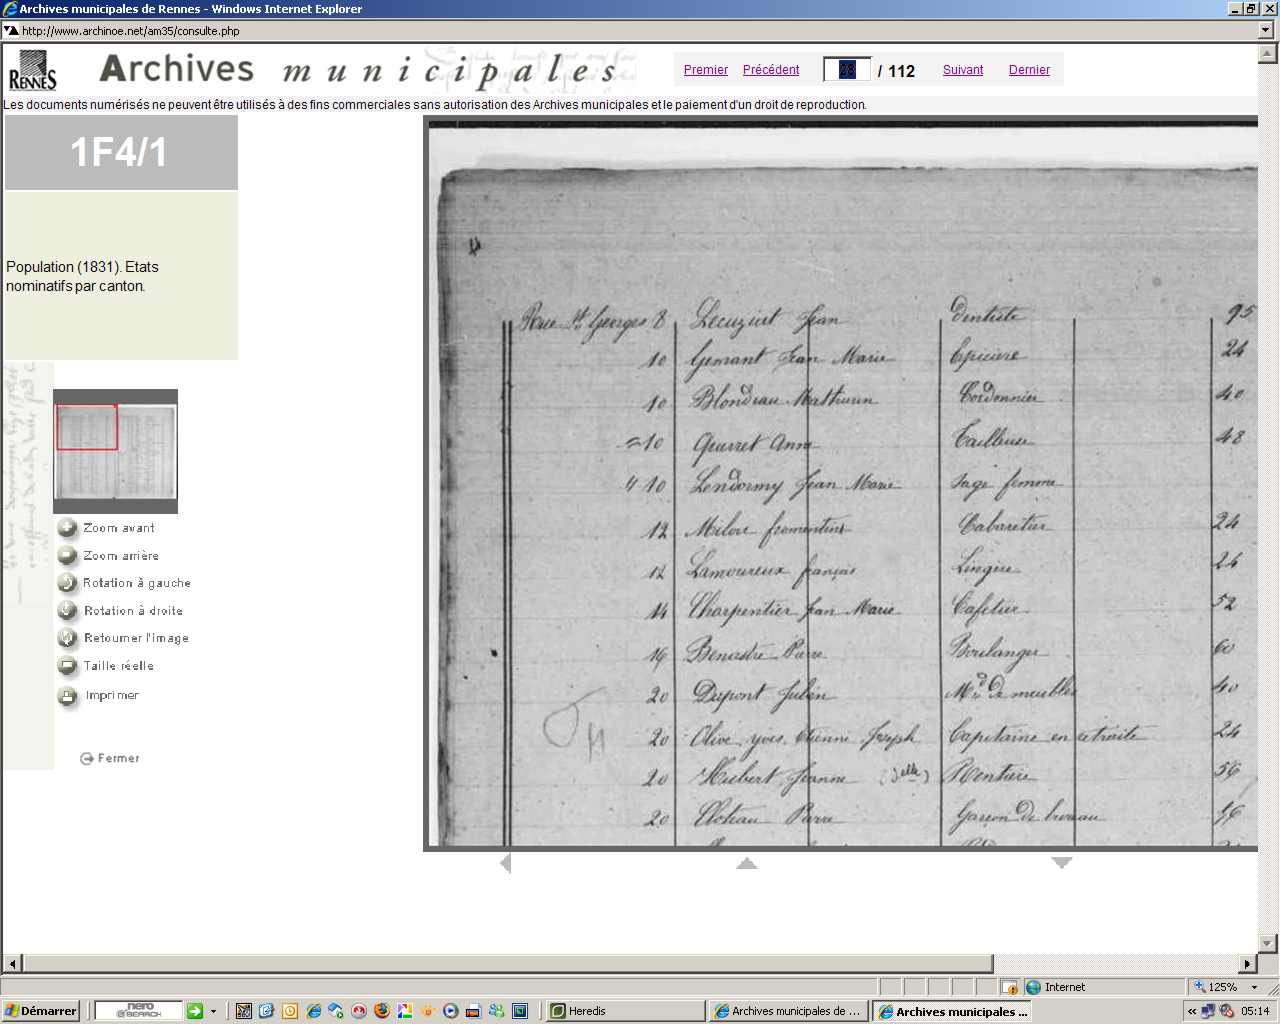 Archives municipales de Rennes - Windows Internet Explorer
http://www.archinoe.net/am35/consulte.php
RENNES
Archives municipales
Premier Précédent / 112 Suivant Dernier
Les documents numérisés ne peuvent être utilisés à des fins commerciales sans autorisation des Archives municipales et le paiement d'un droit de reproduction.
1F4/1
Population (1831). Etats
nominatifs par canton.
Zoom avant
Zoom arrière
Rotation à gauche
Rotation à droite
Retourner l'image
Taille réelle
Imprimer
Fermer
Rue St Georges 8 Jean Dentiste 95
10 Gemant Jean Marie Epicière 24
10 Blondeau Mathurin Cordonnier 40
10 Anne Tailleuse 48
10 Lendormy Jean Marie Sage femme
12 Cabaretier 24
12 Lamoureux françois Lingère 24
14 Charpentier Jean Marie Cafetier 52
16 Pierre Boulanger 60
20 Dupont Julien Md de meubles 40
20 Olive yves Etienne Joseph Capitaine en retraite 24
20 Hubert Jeanne (Delle) Rentière 56
20 Pierre Garçon de bureau
Internet
125%
Démarrer
nero
SEARCH
Heredis
Archives municipales de ...
Archives municipales ...
05:14